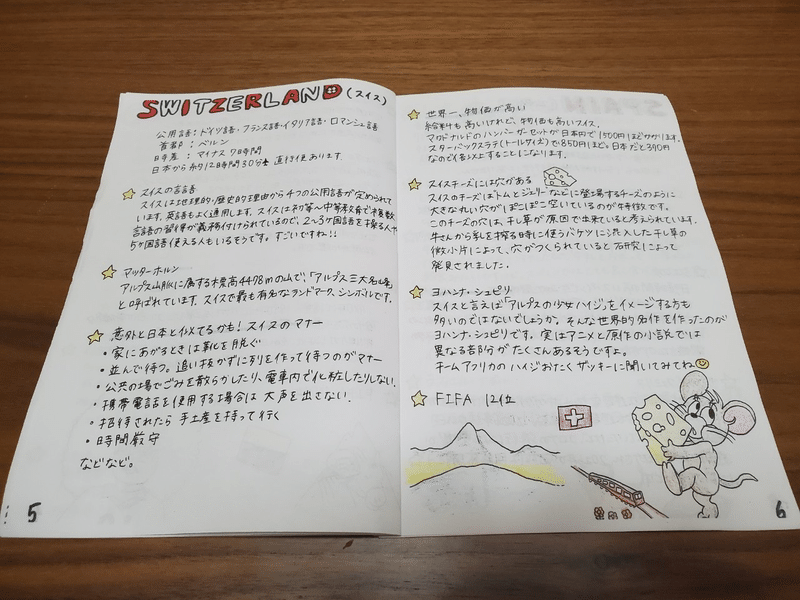 SWITZERLAND (スイス)
公用語:ドイツ語・フランス語・イタリア語・ロマンシュ語
首都:ベルン
時差:マイナス7時間
日本から約12時間30分 直行便あります
スイスの言語
スイスは地理的・歴史的理由から4つの公用語が定められて
います。英語もよく通用します。スイスは初等〜中等教育で複数
言語の習得が義務付けられているので、2〜3ヶ国語を操る人や
5ヶ国語使える人もいるそうです。すごいですね!!
マッターホルン
アルプス山脈に属する標高4478mの山で、「アルプス三大名峰」
と呼ばれています。スイスで最も有名なランドマーク、シンボルです。
意外と日本と似てるかも!スイスのマナー
・家にあがるときは靴を脱ぐ
・並んで待つ。追い抜かずに列を作って待つのがマナー
・公共の場でごみを散らかしたり、電車内で化粧したりしない.
・携帯電話を使用する場合は大声を出さない.
・招待されたら手土産を持って行く
・時間厳守
などなど。
5
世界一、物価が高い
給料も高いけれど、物価も高いスイス.
マクドナルドのハンバーガーセットが日本円で1500円ほどかかります.
スターバックスラテ(トールサイズ)で850円ほど。日本だと390円
なので倍以上することになります.
スイスチーズには穴がある
スイスのチーズはトムとジェリーなどに登場するチーズのように
大きな丸い穴がぽこぽこ空いているのが特徴です.
このチーズの穴は、干し草が原因で出来ていると考えられています.
牛さんから乳を搾る時に使うバケツに混入した干し草の
微小片によって、穴がつくられていると研究によって
発見されました.
ヨハンナ・シュピリ
スイスと言えば「アルプスの少女ハイジ」をイメージする方も
多いのではないでしょうか。そんな世界的名作を作ったのが
ヨハンナ・シュピリです。実はアニメと原作の小説では
異なる部分がたくさんあるそうですよ。
チームアフリカのハイジおたく ザッキーに聞いてみてね
FIFA 12位
6